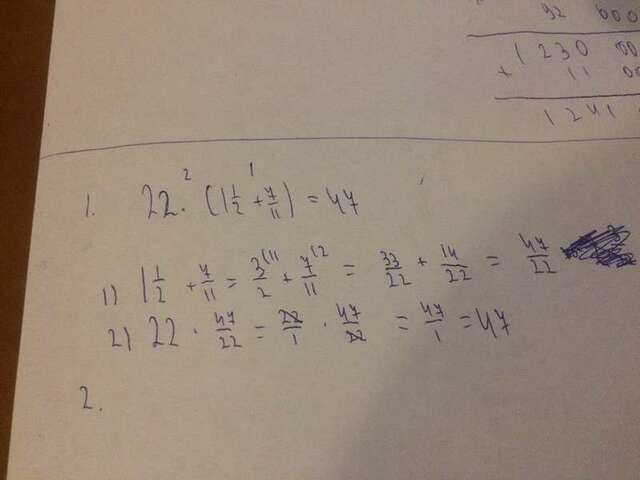 92 000
1 230 00
+ 11 00
1 241
1. 22 · (1 1/2 + 7/11) = 47
2 1
1) 1 1/2 + 7/11 = 3/2 (11 + 7/11 (2 = 33/22 + 14/22 = 47/22
2) 22 · 47/22 = 22/1 · 47/22 = 47/1 = 47
2.